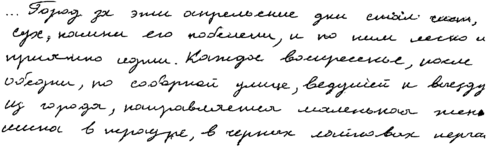 ... Город за эти апрельские дни стал чист,
сух, камни его побелели, и по ним легко и
приятно идти. Каждое воскресенье, после
обедни, по соборной улице, ведущей к выезду
из города, направляется маленькая жен-
щина в трауре, в черных лайковых перча